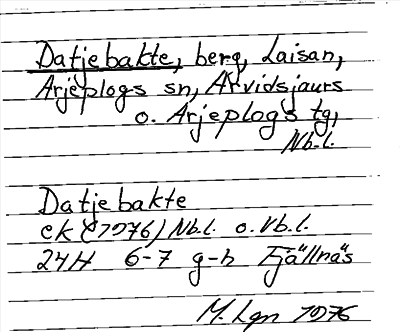 Datjebakte, berg, Laisan,
Arjeplogs sn, Arvidsjaurs
o. Arjeplogs tg,
Nb.l.
Datjebakte
ek (1976) Nb.l. o. Vb.l.
24H 6-7 g-h Fjällnäs
M. Lgn 1976